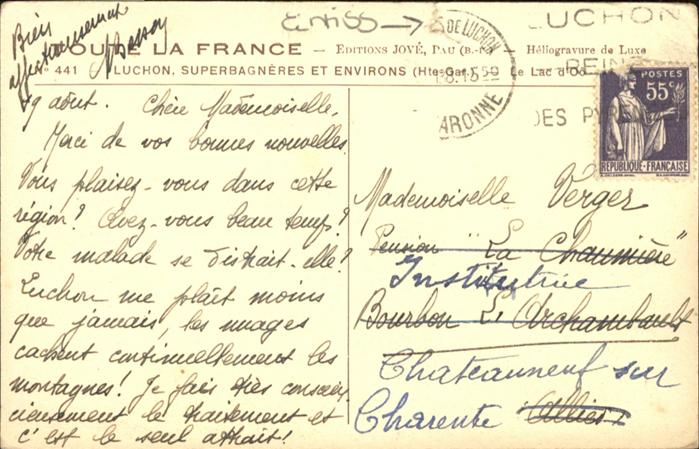 Bien
affectueusement
Masson
TOUTE LA FRANCE — EDITIONS JOVÉ, PAU (B.-P.) Héliogravure de Luxe
N° 441 LUCHON, SUPERBAGNÈRES ET ENVIRONS (Hte-Gar.) Le Lac d'Oô
DE LUCHON
ARONNE
LUCHON
REINE
DES PYRÉNÉES
POSTES
55c
REPUBLIQUE-FRANÇAISE
29 août. Chère Mademoiselle,
Merci de vos bonnes nouvelles.
Vous plaisez-vous dans cette
région? Avez-vous beau temps?
Votre malade se distrait-elle?
Luchon me plaît moins
que jamais, les nuages
cachent continuellement les
montagnes! Je fais très conscien-
cieusement le traitement et
c'est le seul attrait!
Mademoiselle Verger
Pension "La Chaumière"
Institutrice
Bourbon L'Archambault
Chateauneuf sur
Charente Allier